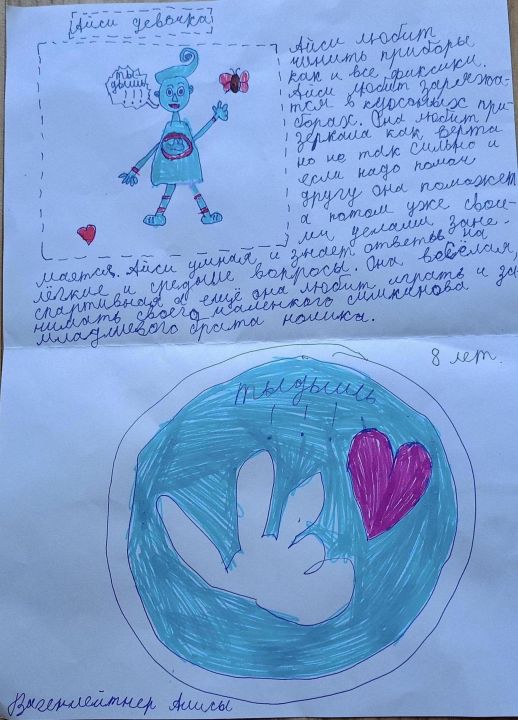 Айси девочка
Ты
дыщь
!!!
Айси любит
чинить приборы
как и все фиксики.
Айси любит заряжа-
тся в классных при-
борах. Она любит
зеркала как верта
но не так сильно и
если надо помоч
другу она поможет
а потом уже свои-
ми делами зане-
мается. Айси умная, и знает ответы на
лёгкие и средние вопросы. Она весёлая,
спартивная а ещё она любит играть и за-
нимать своего маленкого
младшевого брата нолика.
8 лет.
тыдыщь
! ! !
Вагенлейтнер Алисы